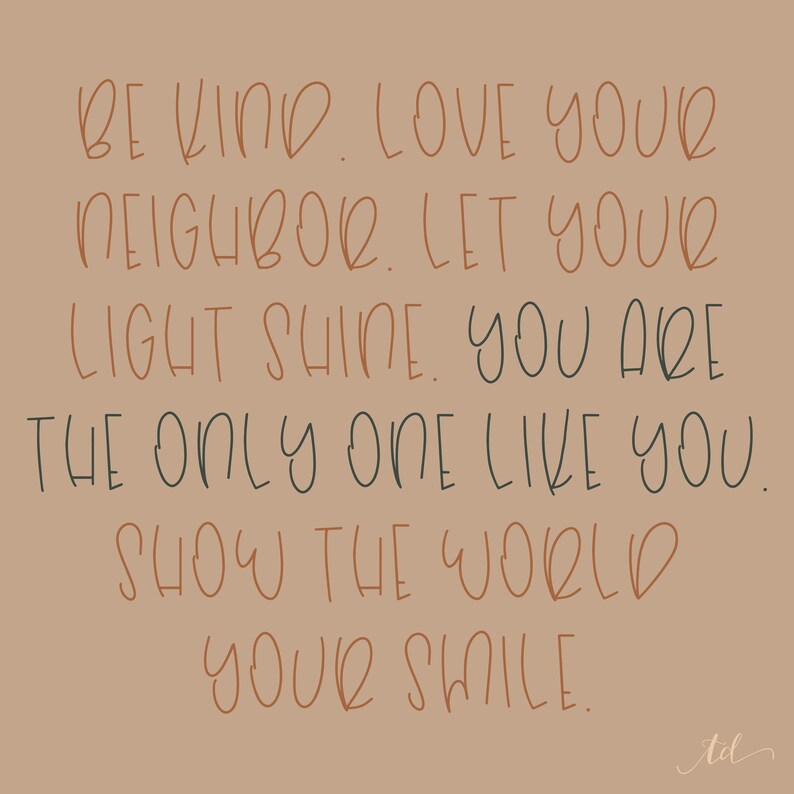 BE KIND. LOVE YOUR
NEIGHBOR. LET YOUR
LIGHT SHINE. YOU ARE
THE ONLY ONE LIKE YOU.
SHOW THE WORLD
YOUR SMILE.
td